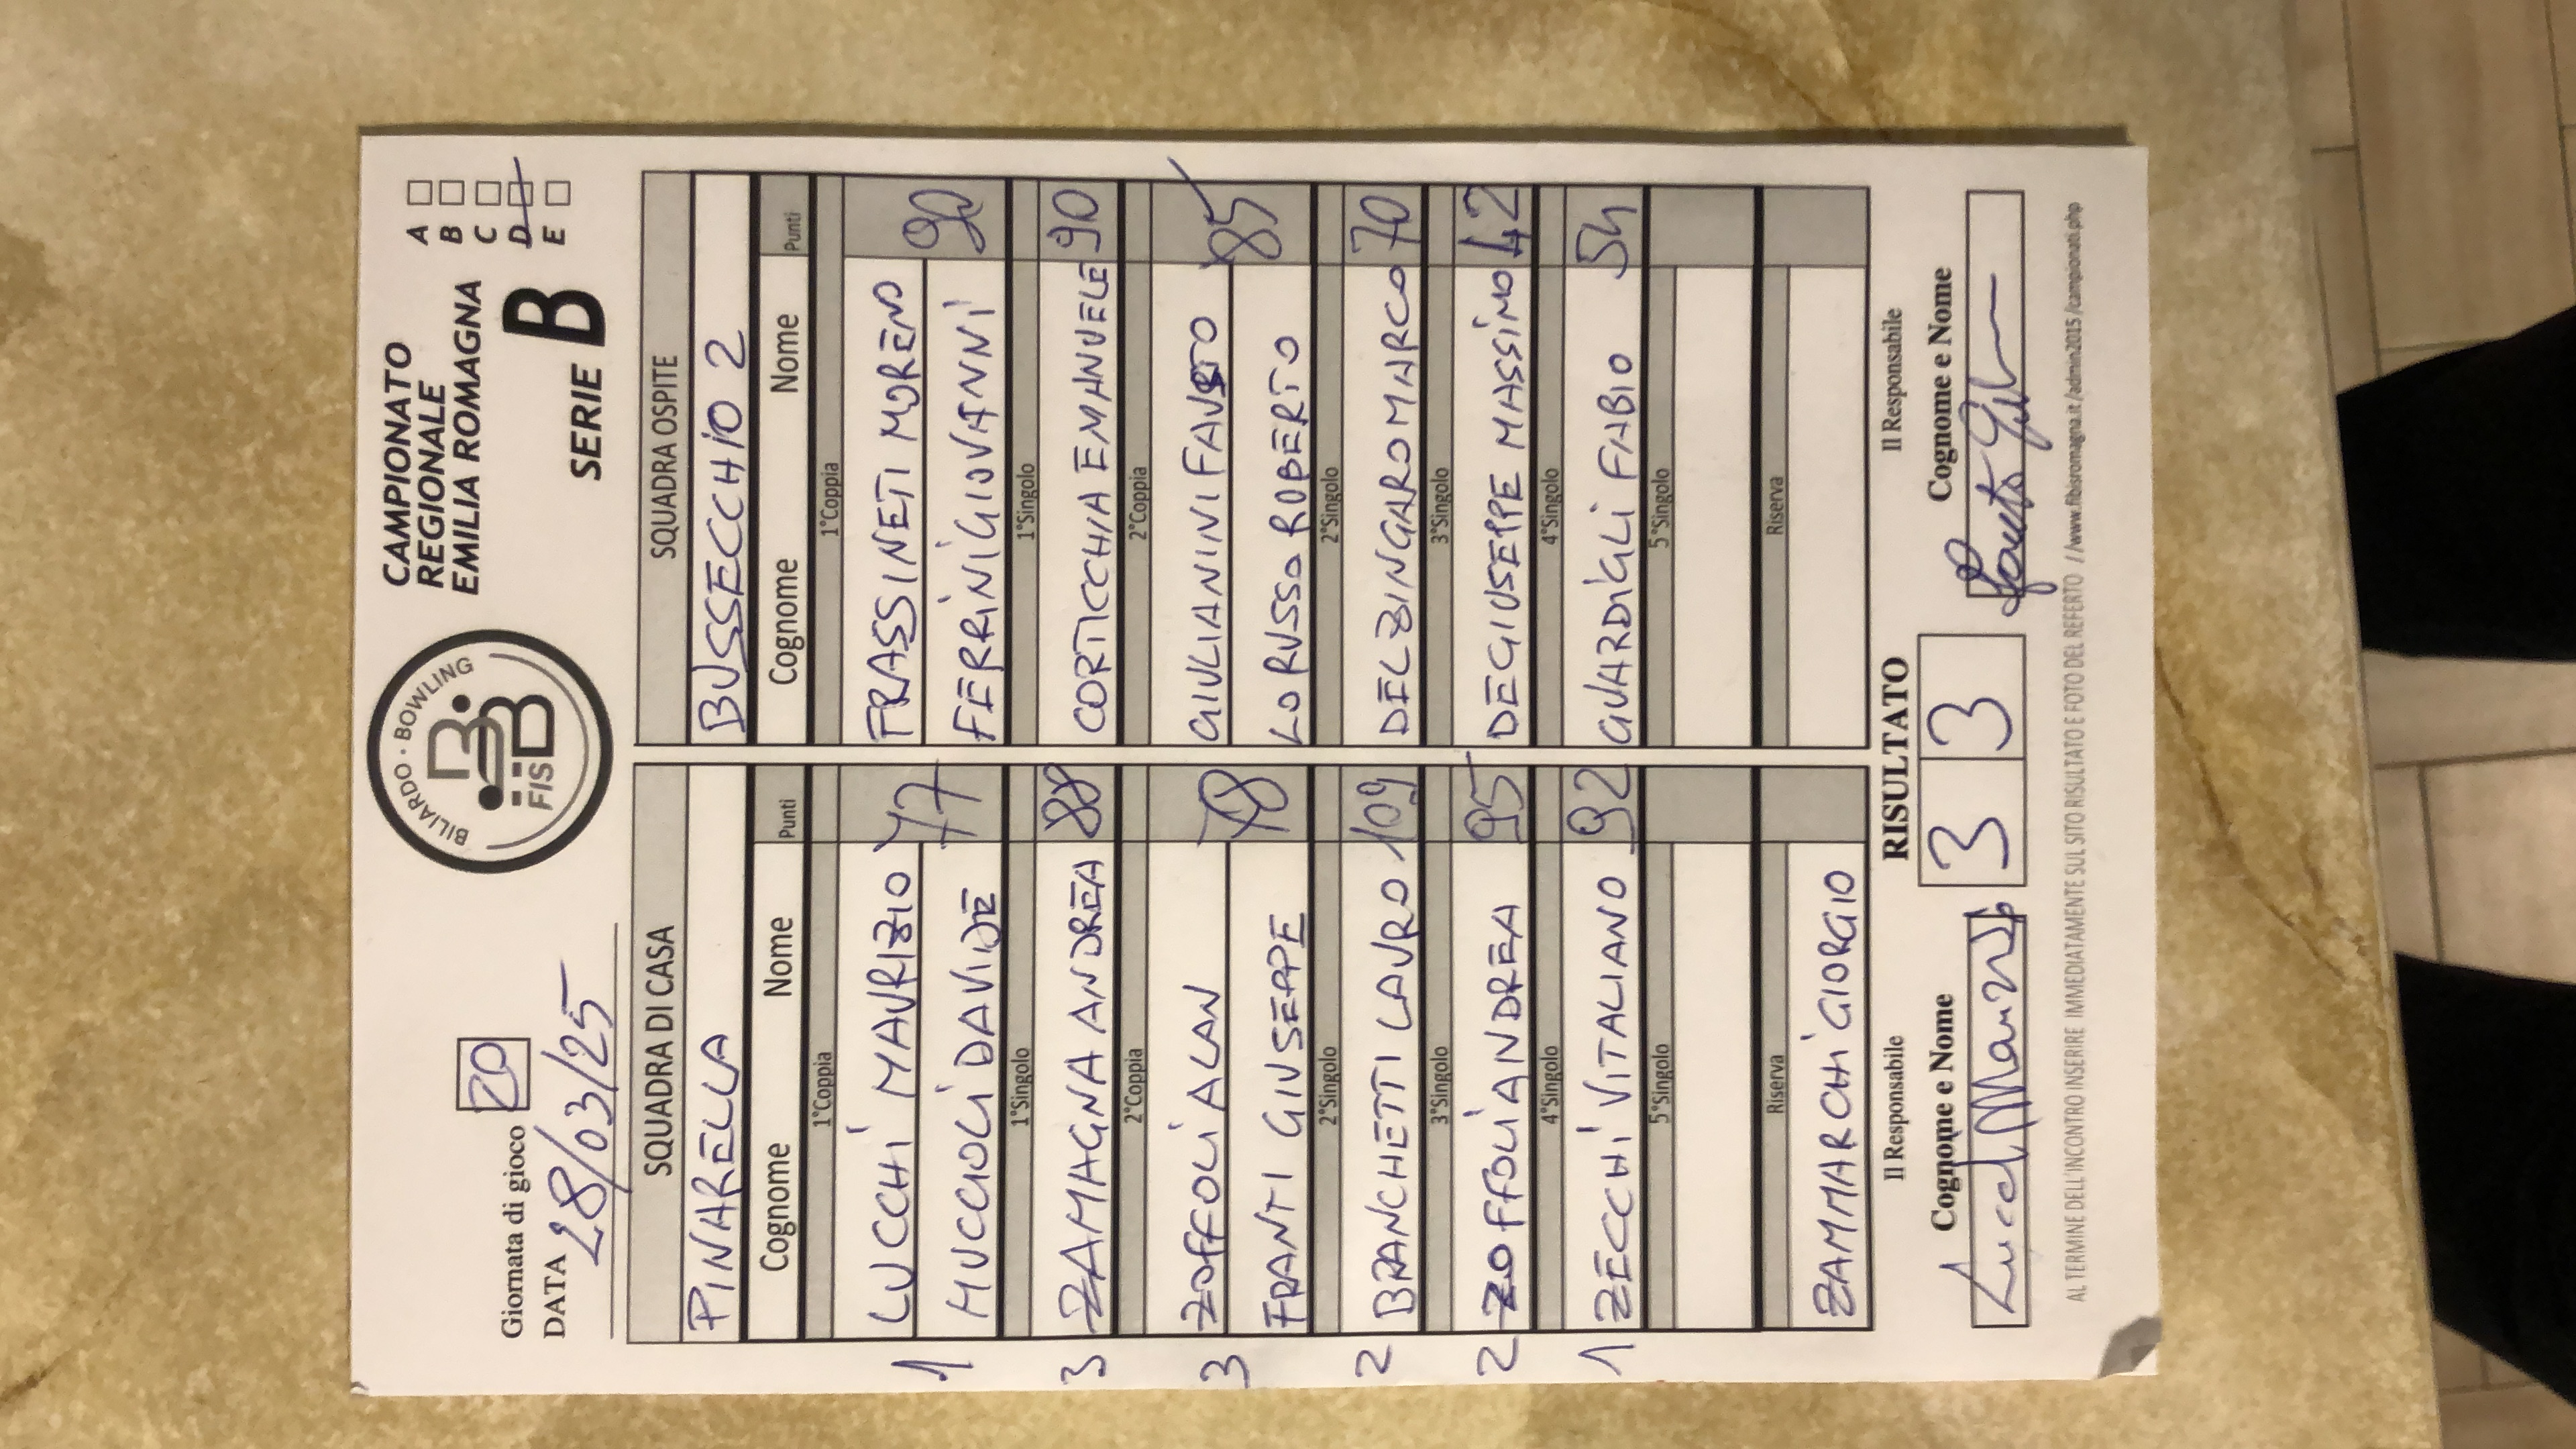 Giornata di gioco 20
DATA 28/03/25
BILIARDO · BOWLING
FISBB
CAMPIONATO
REGIONALE
EMILIA ROMAGNA
SERIE B
A
B
C
D
E
SQUADRA DI CASA SQUADRA OSPITE
PINARELLA BUSSECCHIO 2
Cognome Nome Punti Cognome Nome Punti
1°Coppia 1°Coppia
LUCCHI MAURIZIO FRASSINETI MORENO
1 77 90
MUCCIOLI DAVIDE FERRINI GIOVANNI
1°Singolo 1°Singolo
3 ZAMAGNA ANDREA 88 CORTICCHIA EMANUELE 90
2°Coppia 2°Coppia
ZOFFOLI ALAN GIULIANINI FAUSTO
3 78 85
FRANTI GIUSEPPE LORUSSO ROBERTO
2°Singolo 2°Singolo
2 BRANCHETTI LAURO 109 DELZINGARO MARCO 70
3°Singolo 3°Singolo
2 ZOFFOLI ANDREA 95 DEGIUSEPPE MASSIMO 42
4°Singolo 4°Singolo
1 ZECCHI VITALIANO 92 GUARDIGLI FABIO 54
5°Singolo 5°Singolo
Riserva Riserva
ZAMMARCHI GIORGIO
Il Responsabile RISULTATO Il Responsabile
Cognome e Nome 3 3 Cognome e Nome
AL TERMINE DELL'INCONTRO INSERIRE IMMEDIATAMENTE SUL SITO RISULTATO E FOTO DEL REFERTO //www.fibisromagna.it/admin2015/campionati.php